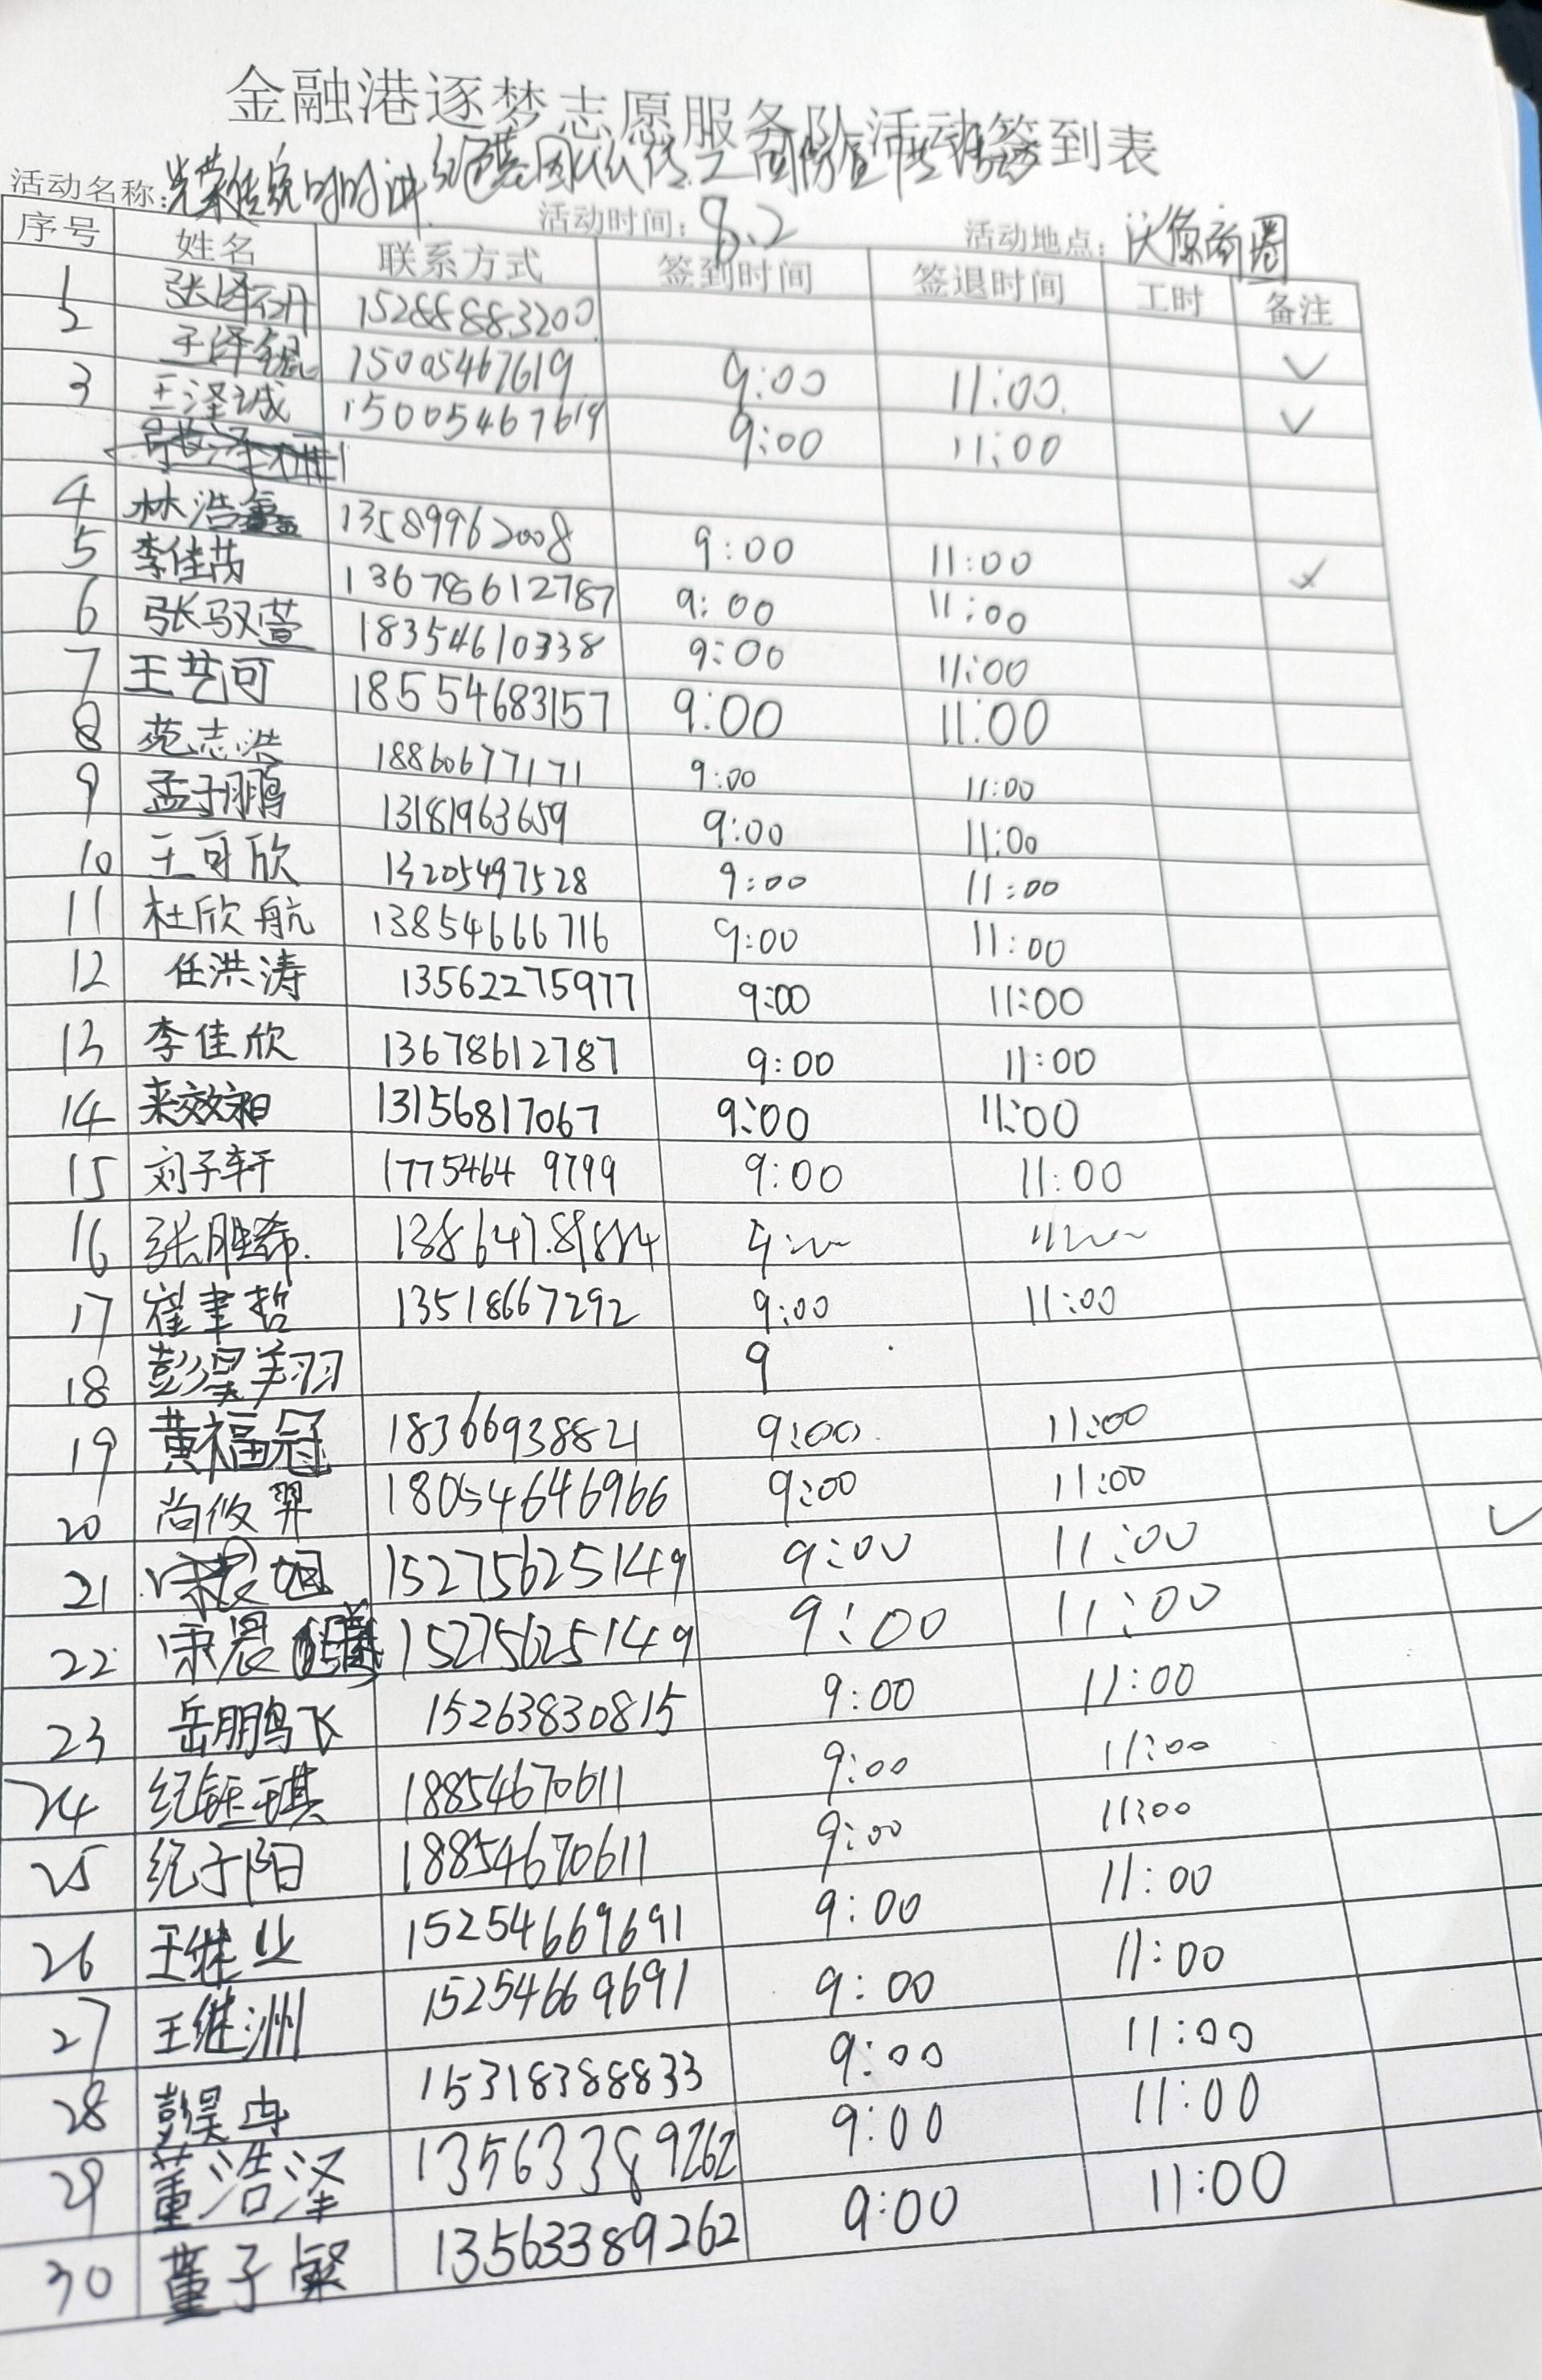 金融港逐梦志愿服务队活动签到表
活动名称:光荣传统时时讲
活动时间: 8.2 活动地点: 沃原商圈
序号 姓名 联系方式 签到时间 签退时间 工时 备注
1 张泽 15288883200
2 王泽锟 15005467619 9:00 11:00 ✓
3 王泽诚 15005467619 9:00 11:00 ✓
4 林浩 13589962008 9:00 11:00
5 李佳茂 13678612787 9:00 11:00
6 张驭萱 18354610338 9:00 11:00
7 王艺可 18554683157 9:00 11:00
8 苑志浩 18860677171 9:00 11:00
9 孟于鹏 13181963659 9:00 11:00
10 王可欣 13205497528 9:00 11:00
11 杜欣航 13854666716 9:00 11:00
12 任洪涛 13562275977 9:00 11:00
13 李佳欣 13678612787 9:00 11:00
14 来效 13156817067 9:00 11:00
15 刘子轩 17754649799 9:00 11:00
16 张胜
17 崔聿哲 13518667292 9:00 11:00
18 彭昊翔羽 9
19 黄福冠 18366938821 9:00 11:00
20 尚攸羿 18054646966 9:00 11:00
21 15275625149 9:00 11:00 ✓
22 宋晨曦 15275625149 9:00 11:00
23 岳鹏飞 15263830815 9:00 11:00
24 纪钰琪 18854670611 9:00 11:00
25 纪子阳 18854670611 9:00 11:00
26 王继业 15254669691 9:00 11:00
27 王继洲 15254669691 9:00 11:00
28 彭昊冉 15318388833 9:00 11:00
29 董浩泽 13563389262 9:00 11:00
30 董子粲 13563389262 9:00 11:00